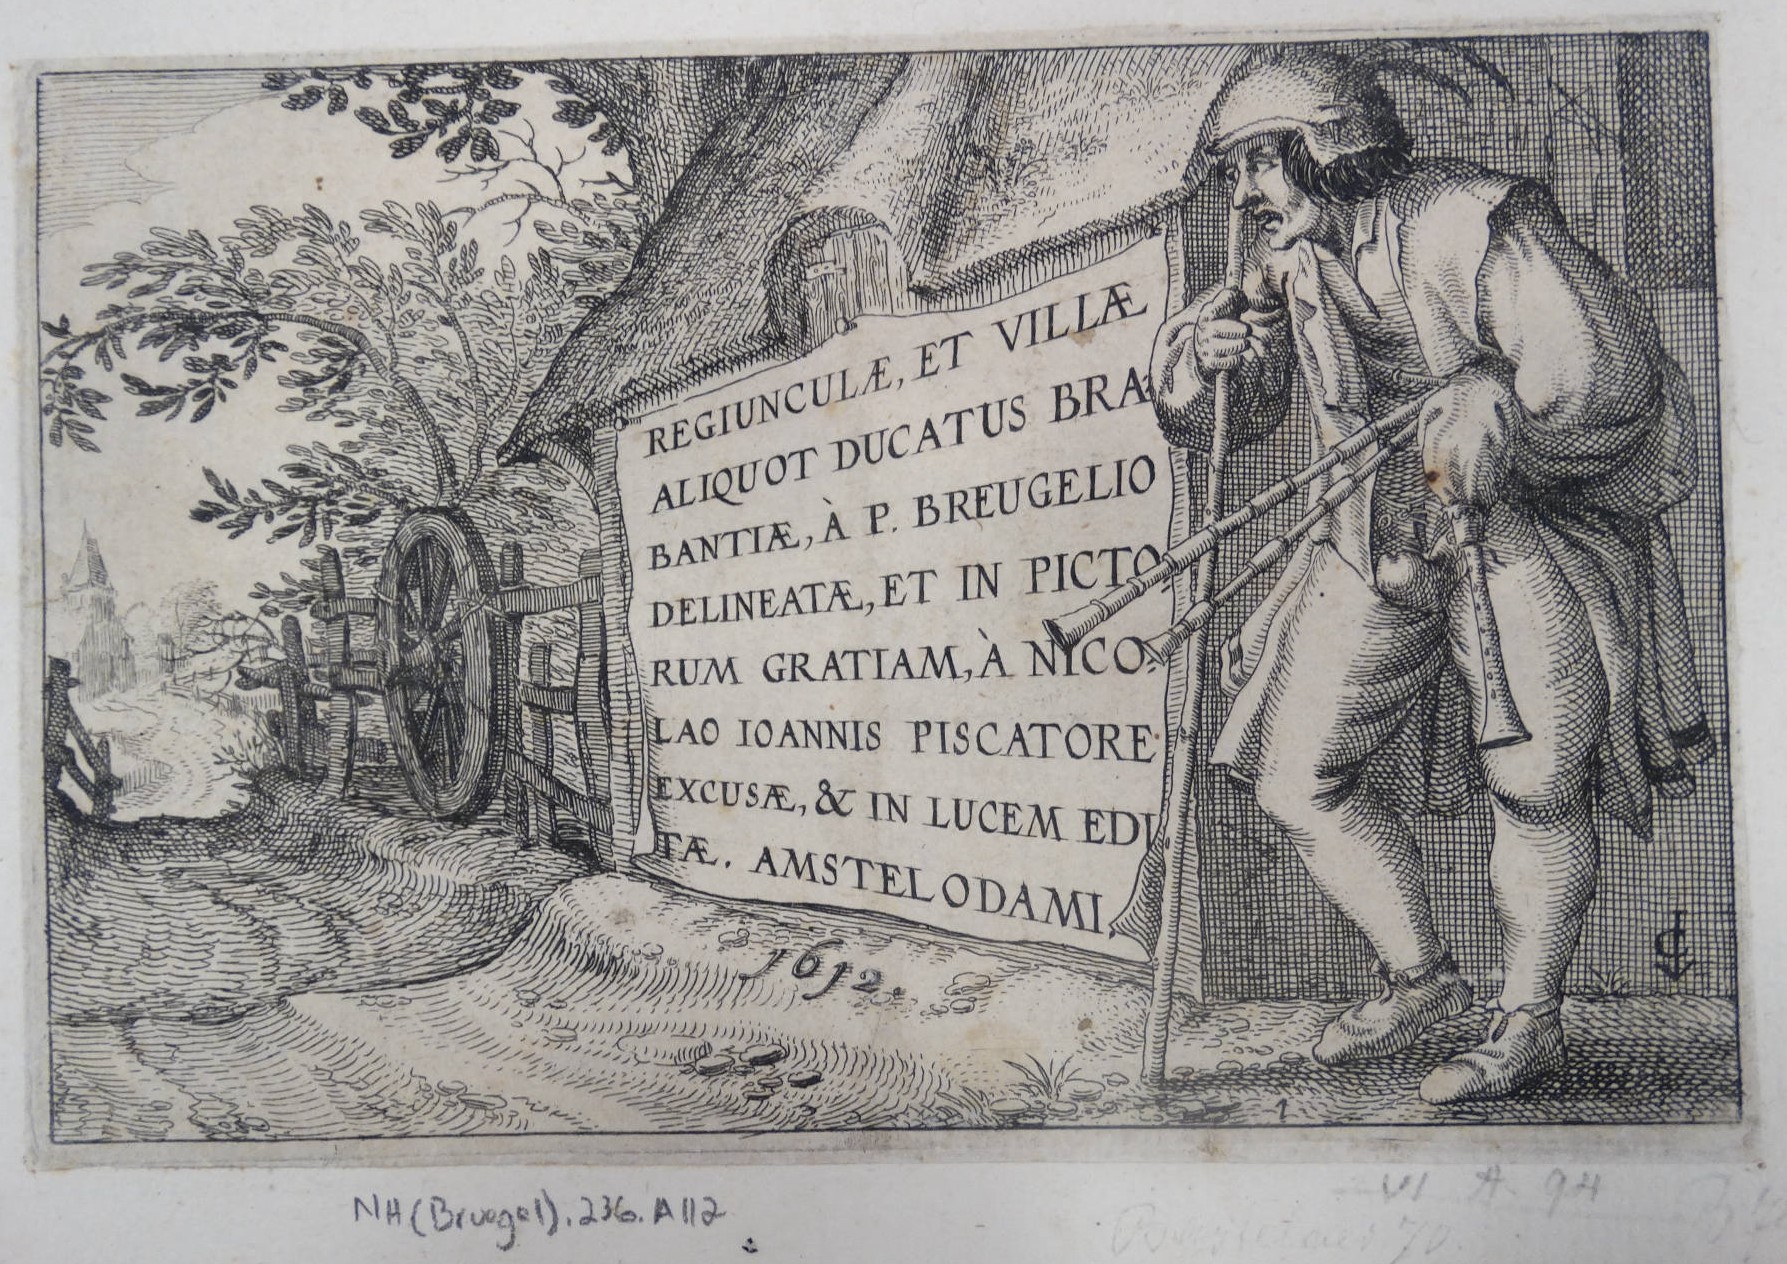 REGIUNCULÆ, ET VILLÆ
ALIQUOT DUCATUS BRA-
BANTIÆ, À P. BREUGELIO
DELINEATÆ, ET IN PICTO
RUM GRATIAM, À NICO-
LAO IOANNIS PISCATORE
EXCUSÆ, & IN LUCEM EDI
TÆ. AMSTELODAMI,
1612.
1
NH (Bruegel). 236. A112
VI A 94